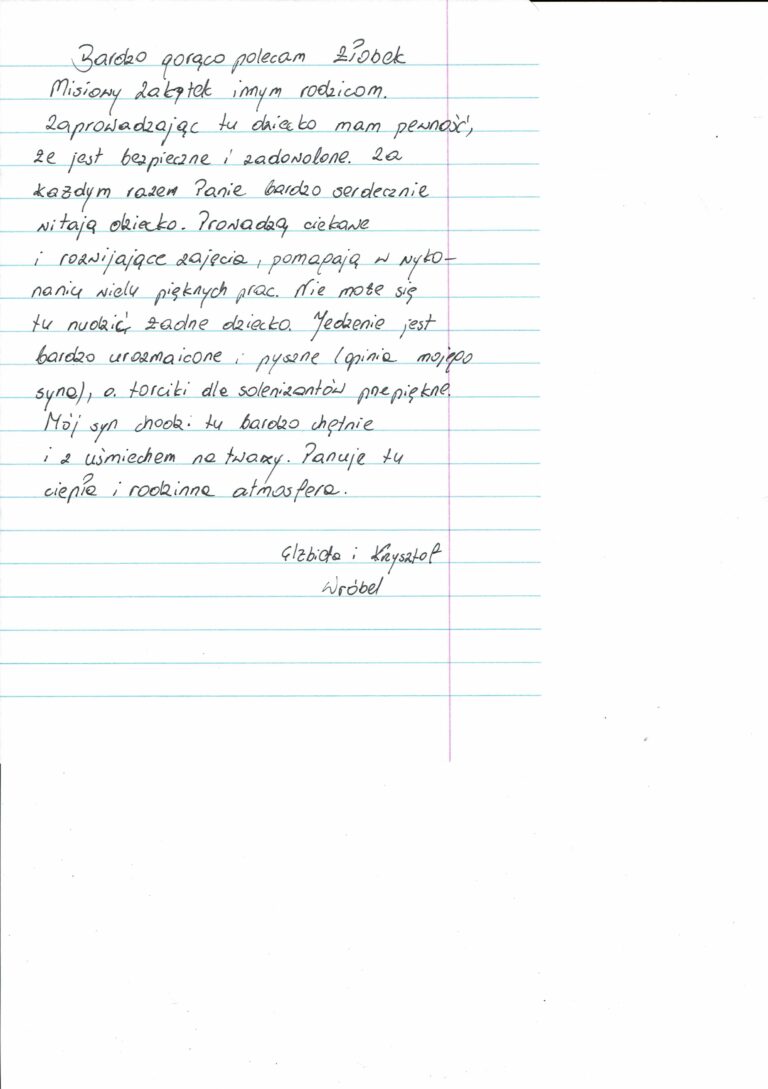 Bardzo gorąco polecam żłobek
Misiowy Zakątek innym rodzicom.
Zaprowadzając tu dziecko mam pewność,
że jest bezpieczne i zadowolone. Za
każdym razem Panie bardzo serdecznie
witają dziecko. Prowadzą ciekawe
i rozwijające zajęcia, pomagają w wyko-
naniu wielu pięknych prac. Nie może się
tu nudzić żadne dziecko. Jedzenie jest
bardzo urozmaicone i pyszne (opinia mojego
syna), a torciki dla solenizantów przepiękne.
Mój syn chodzi tu bardzo chętnie
i z uśmiechem na twarzy. Panuje tu
ciepła i rodzinna atmosfera.
Elżbieta i Krzysztof
Wróbel